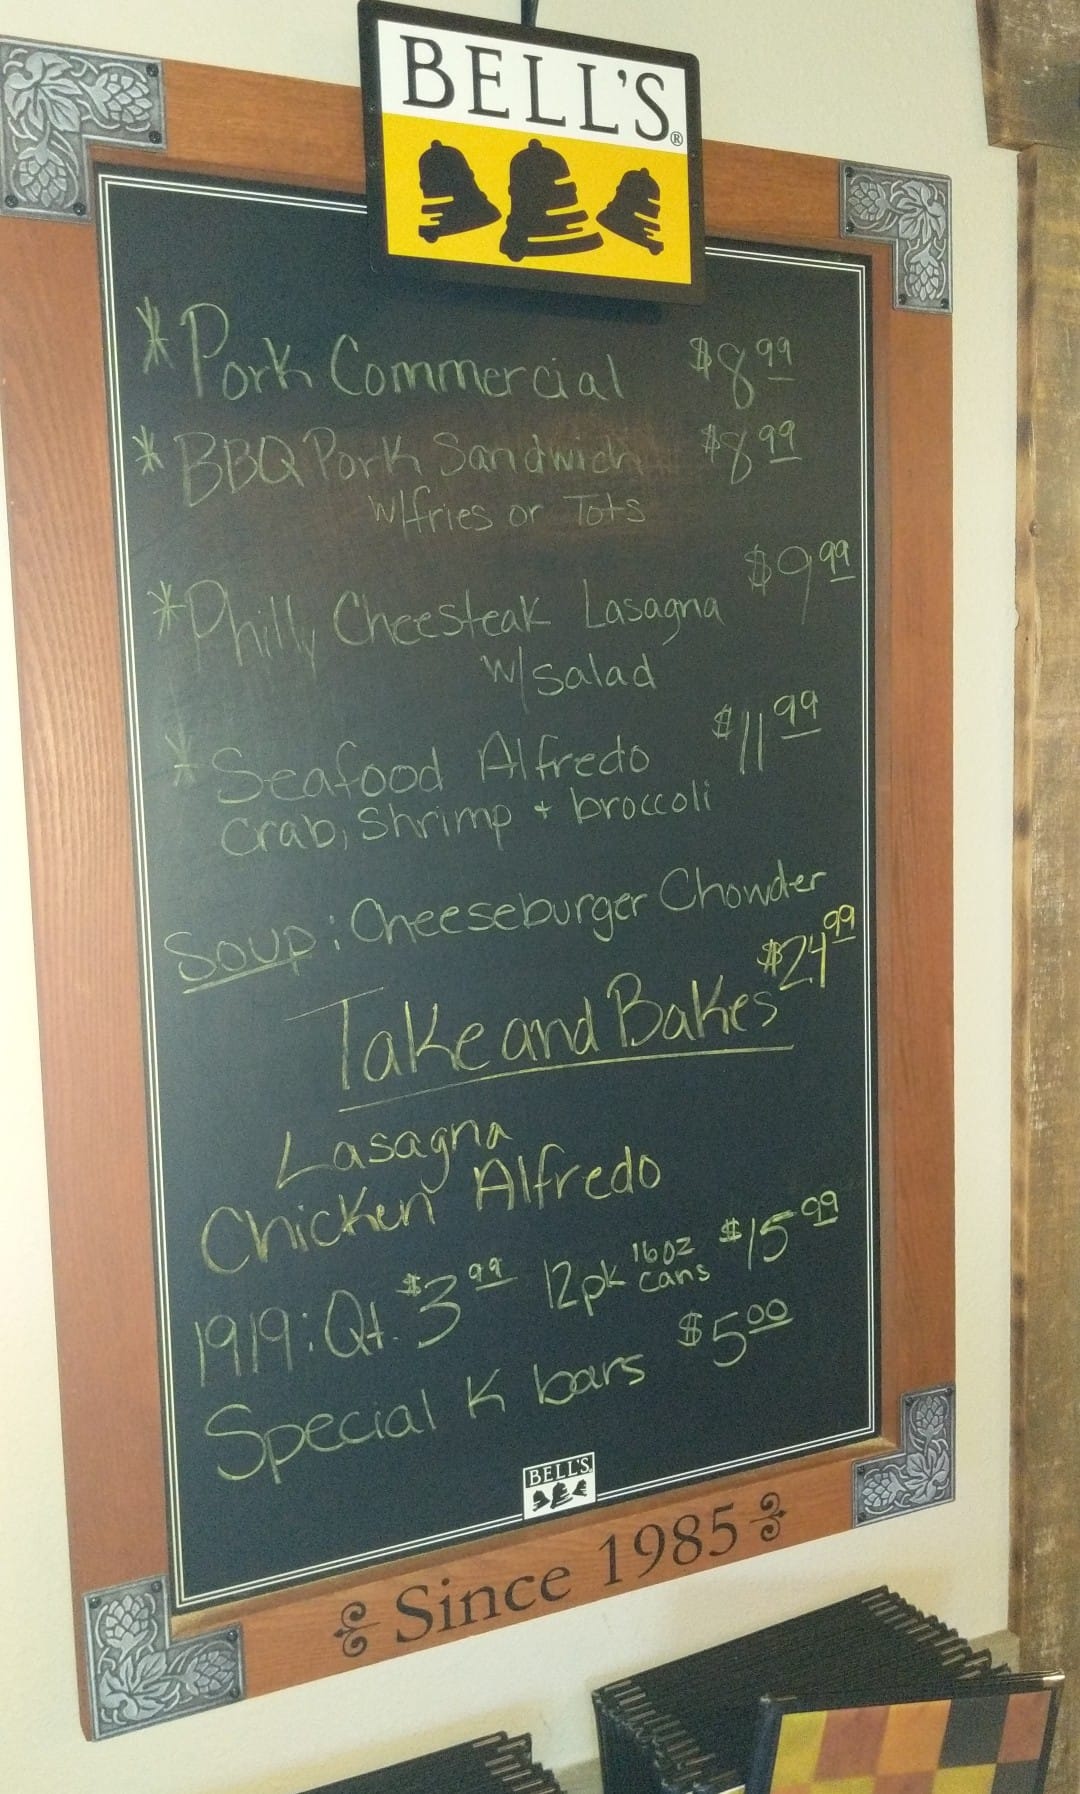 BELL'S®
*Pork Commercial $8.99
*BBQ Pork Sandwich $8.99
w/fries or Tots
*Philly Cheesteak Lasagna $9.99
w/salad
*Seafood Alfredo $11.99
Crab, Shrimp + broccoli
Soup: Cheeseburger Chowder
Take and Bakes $24.99
Lasagna
Chicken Alfredo
1919: Qt. $3.99 12pk 16oz cans $15.99
Special K bars $5.00
BELL'S
Since 1985